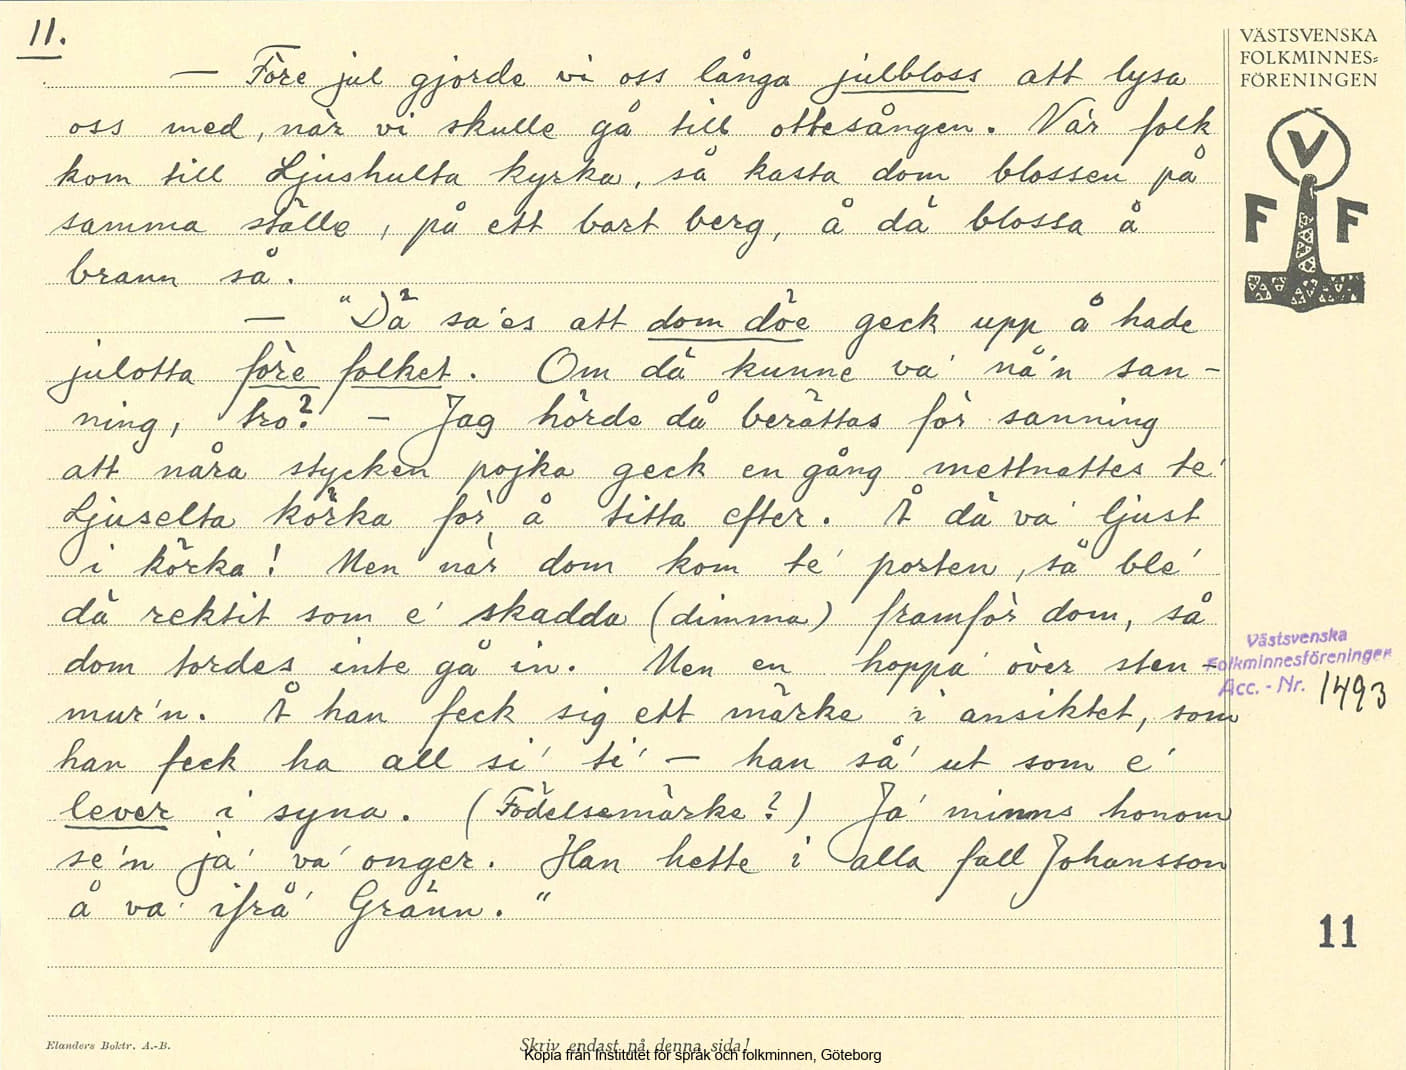 11.
VÄSTSVENSKA
FOLKMINNES=
FÖRENINGEN
V
F F
— Före jul gjorde vi oss långa julbloss att lysa
oss med, när vi skulle gå till ottesången. När folk
kom till Ljushulta kyrka, så kasta dom blossen på
samma ställe, på ett bart berg, å dä blossa å
brann så.
— "Dä sa'es att dom döe geck upp å hade
julotta före folket. Om dä kunne va' nå'n san-
ning, tro? — Jag hörde då berättas för sanning
att nåra stycken pojka geck en gång mettnattes te'
Ljuselta körka för å titta efter. Å dä va' ljust
i körka! Men när dom kom te' porten, så ble'
dä rektit som e' skadda (dimma) framför dom, så
dom tordes inte gå in. Men en hoppa' över sten-
mur'n. Å han feck sig ett märke i ansiktet, som
han feck ha all si' ti' — han så' ut som e'
lever i syna. (Födelsemärke?) Ja' minns honom
se'n ja' va' onger. Han hette i alla fall Johansson
å va' ifrå' Gränn."
Västsvenska
Folkminnesföreningen
Acc. - Nr. 1493
11
Elanders Boktr. A.-B.
Skriv endast på denna sida!
Kopia från Institutet för språk och folkminnen, Göteborg